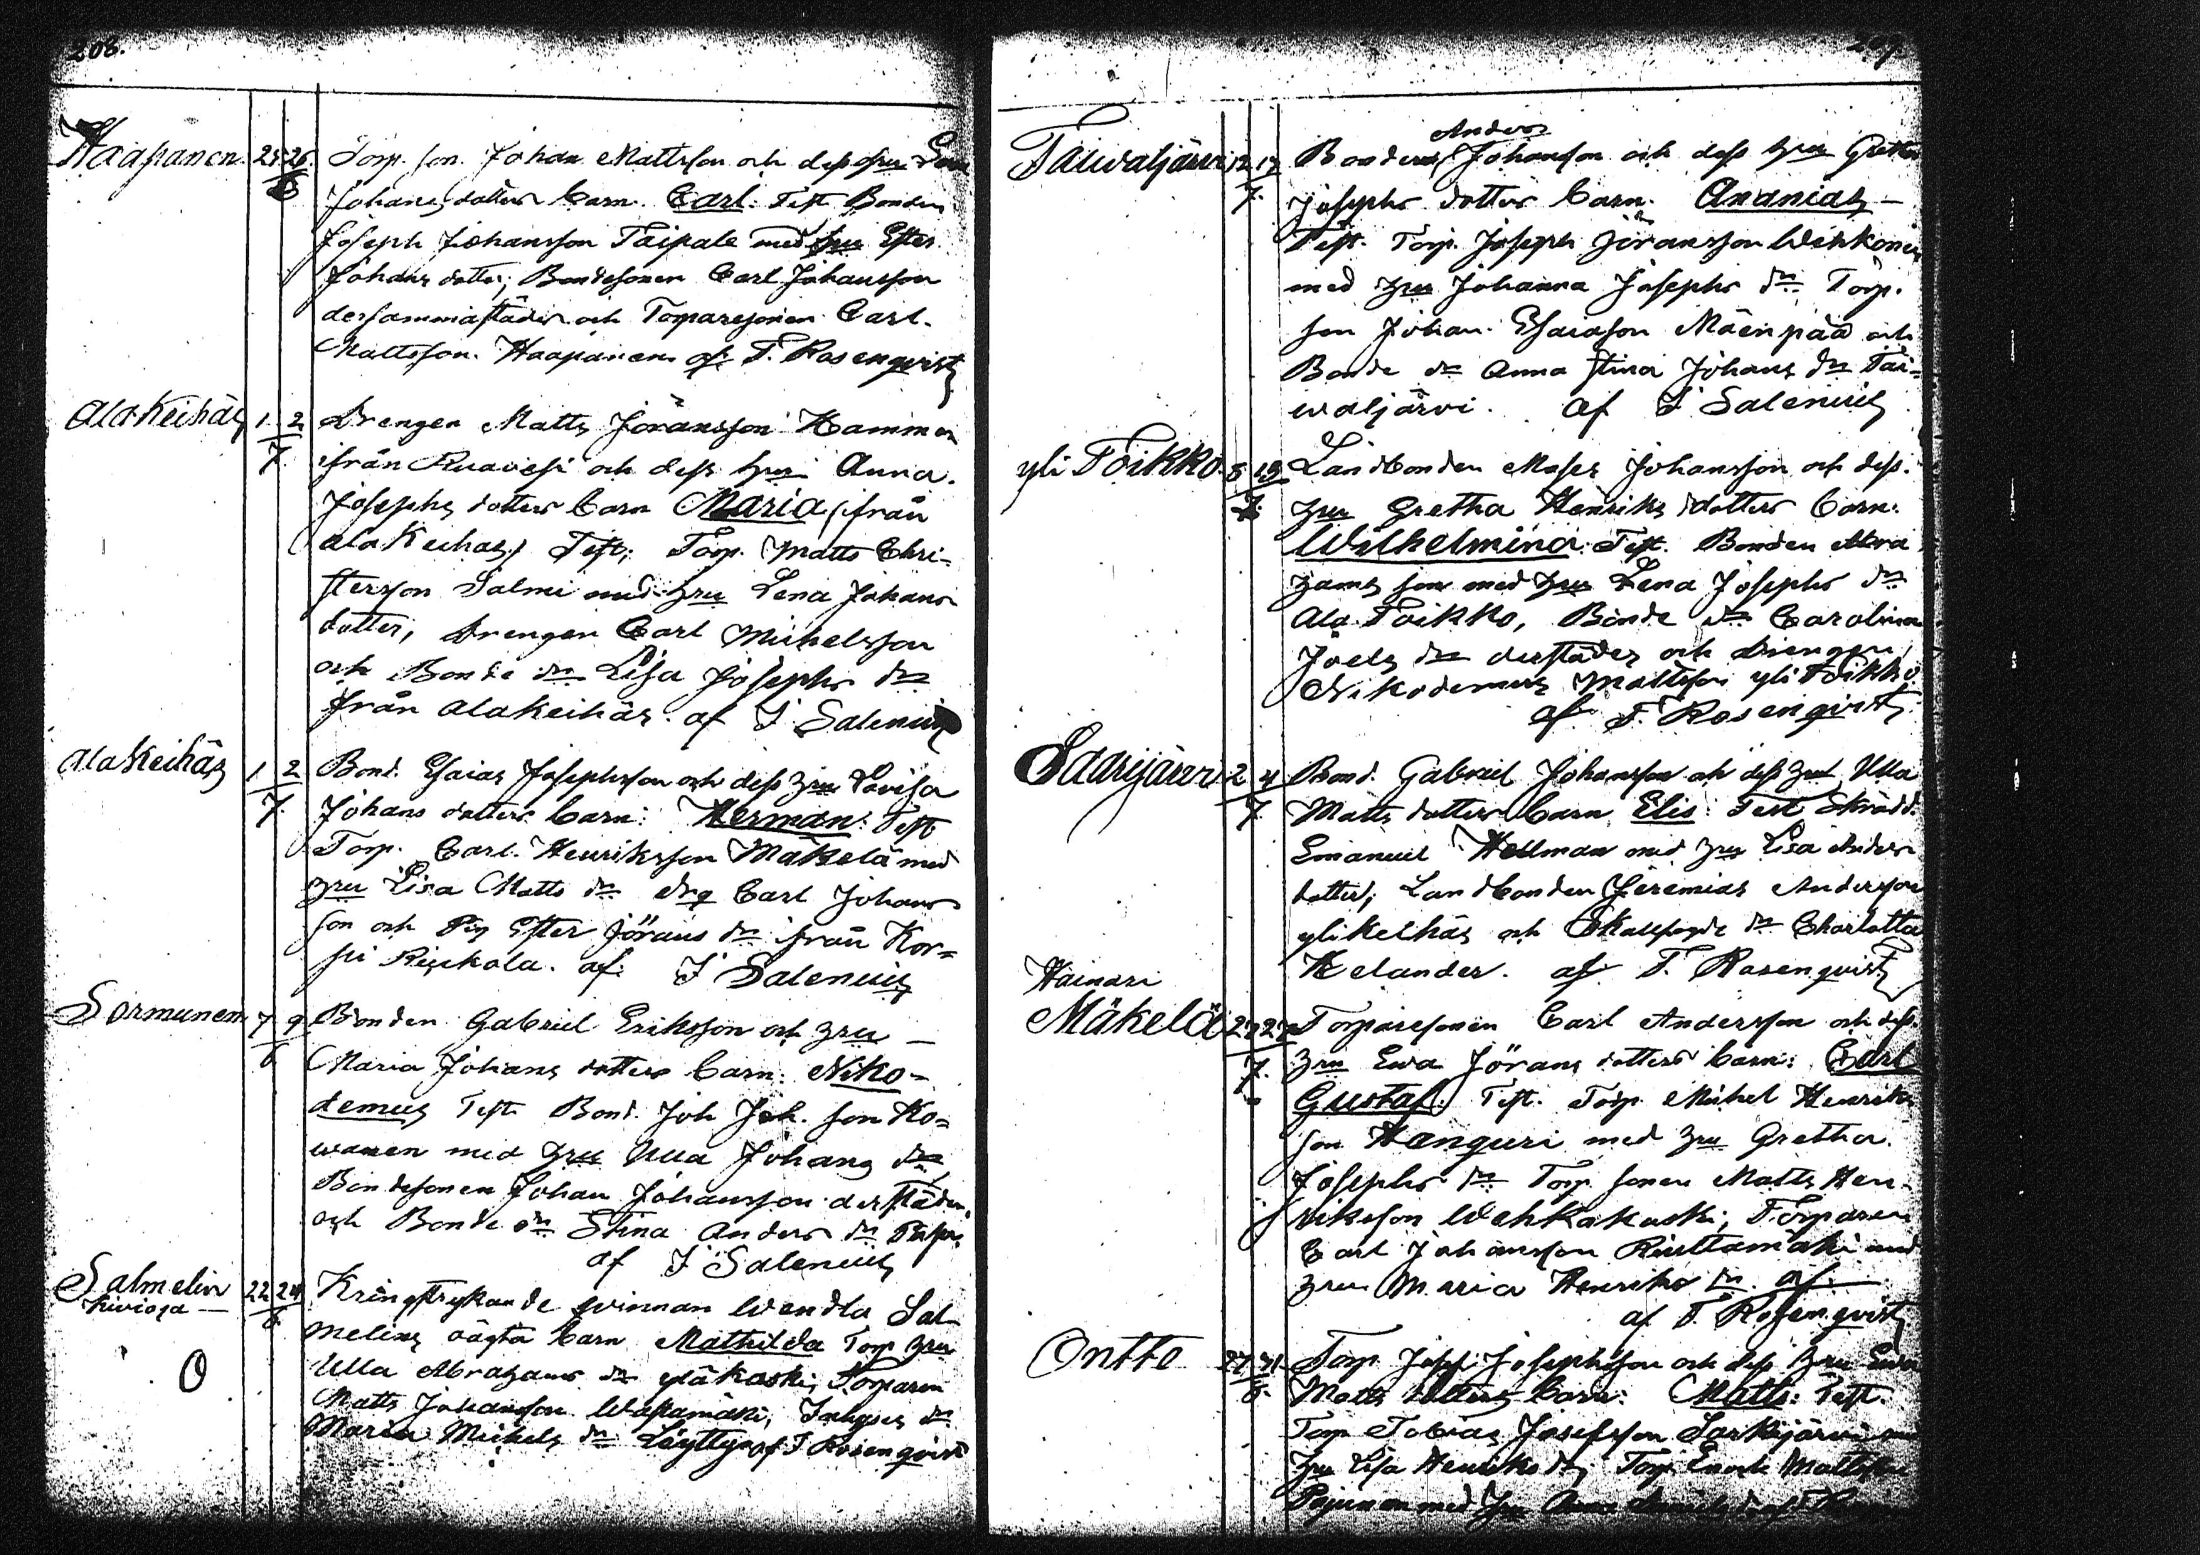 208.
Haapanen. 25 26. Torp. son. Johan Mattsson och dess hru
6 Johans dotters barn. Carl: Test Bonden
Joseph Johansson Taipale med hru Ester
Johans dotter; Bondesonen Carl Johansson
dersammastädes och Torparesonen Carl.
Mattsson. Haapanen af. F. Rosenqvist
Alakeihäs 1. 2 Drengen Matts Jöransson Hamminen
7. ifrån Ruovesi och dess hru Anna.
Josephs dotters barn Maria (ifrån
alakeihäs) Test; Torp. Matts Chri-
stersson Salmi med hru Lena Johans
dotter, Drengen Carl Michelsson
och Bonde dr Lisa Josephs dr
från alakeihäs. af J Salenius
Alakeihäs 1. 2 Bond. Esaias Josephsson och dess hru Lovisa
7. Johans dotters barn: Herman: Test
Torp. Carl. Henriksson Mäkelä med
hru Lisa Matts dr drg Carl Johans
son och Pig Ester Jörans dr från Kor-
pi Riskala. af. J Salenius
Sormunen 7 9 Bonden Gabriel Eriksson och hru —
6 Maria Johans dotters barn: Niko-
demus Test Bond. Joh Joh. son Ko-
wanen med hru Ulla Johans dr
Bondesonen Johan Johansson derstädes
och Bonde dr Stina Anders dr
af J Salenius
Salmelin 22 24 Kringstrykande qvinnan Wendla Sal-
Kivioja — 6 melins oägta barn Mathilda Torp hru
O Ulla Abrahams dr yläkoski; Torparen
Matts Johansson Wastamäki, dr
Maria Michels dr Löytty af F Rosenqvist
209.
Anders
Taiwaljärwi 12 13 Bonden Johansson och dess hru Gretha
7. Josephs dotters barn. Ananias —
Test. Torp. Joseph Jöransson Wehkonen
med hru Johanna Josephs dr Torp.
son Johan. Esaiasson Mäenpää och
Bonde dr Anna Stina Johans dr Tai-
waljärvi. af J Salenius
yli Poikko. 8 13 Landbonden Moses Johansson och dess.
7. hru Gretha Henriks dotters barn:
Wilhelmina: Test. Bonden Abra
hams son med hru Lena Josephs dr
Ala Poikko, Bonde dr Carolina
Joels dr derstädes och drengen
Nikodemus Mattsson yli Poikko
af F. Rosenqvist
Saarijärvi 2 4 Bond. Gabriel Johansson och dess hru Ulla
7 Matts dotters barn Elis: Test Skrädd.
Emanuel Hellman med hru Lisa Anders
dotter; Landbonden Jeremias Andersson
ylikeihäs och dr Charlotta
Helander. af F. Rosenqvist
Hainari
Mäkelä 27 27 Torparesonen Carl Andersson och dess.
7. hru Ewa Jörans dotters barn: Carl
Gustaf: Test. Torp Michel Henriks
son Hanguri med hru Gretha.
Josephs dr Torp sonen Matts Hen-
riksson Wehkakoski; Torparen
Carl Johansson Risttamäki med
hru Maria Henriks dr af
af F. Rosenqvist
Ontto 27 31 Torp Josef Josephsson och dess hru Ewa
6. Matts dotters barn: Matts: Test.
Torp Tobias Josefsson Särkijärvi med
hru Lisa Henriks dr; Torp Enoch Mattsson
Pajunen med hru Anna